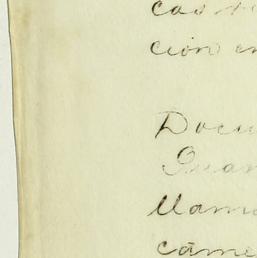 cas
ción en
Docu
Juan
llam
came